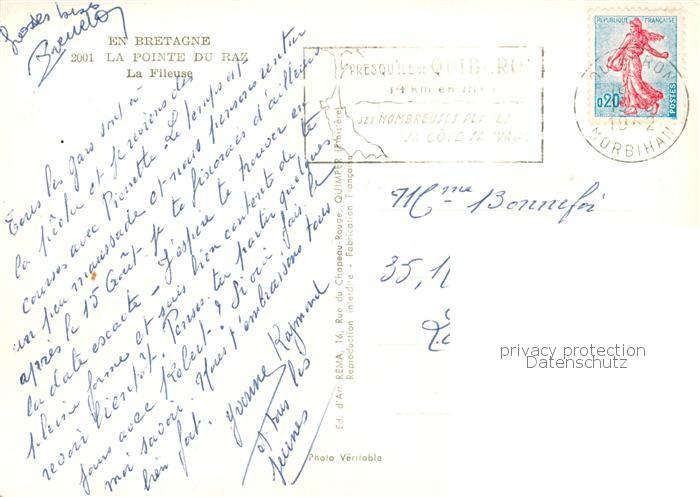 Grosses bises
EN BRETAGNE
2001 LA POINTE DU RAZ
La Fileuse
Tous les gars sont à
la pêche et je reviens des
courses avec Pierrette. Le temps est
un peu maussade et nous pensons rentrer
après le 15 Août. Je te d'ailleurs
la date exacte - J'espère te trouver en
pleine forme et suis bien contente de te
revoir bientôt. Penses-tu partir quelques
jours avec Robert ? Si oui fais le
moi savoir. Nous t'embrassons tous
bien fort. Yvonne Raymond
et tous les
jeunes
Ed. d'Art REMA, 16, Rue du Chapeau-Rouge, QUIMPER (Finistère)
Reproduction interdite - Fabrication Française
Photo Véritable
PRESQU'ILE DE QUIBERON
14 KM EN MER
SES NOMBREUSES PLAGES
SA CÔTE SAUVAGE
REPUBLIQUE FRANÇAISE
0,20
POSTES
QUIBERON
MORBIHAN
Mme Bonnefoi
35,
privacy protection
Datenschutz